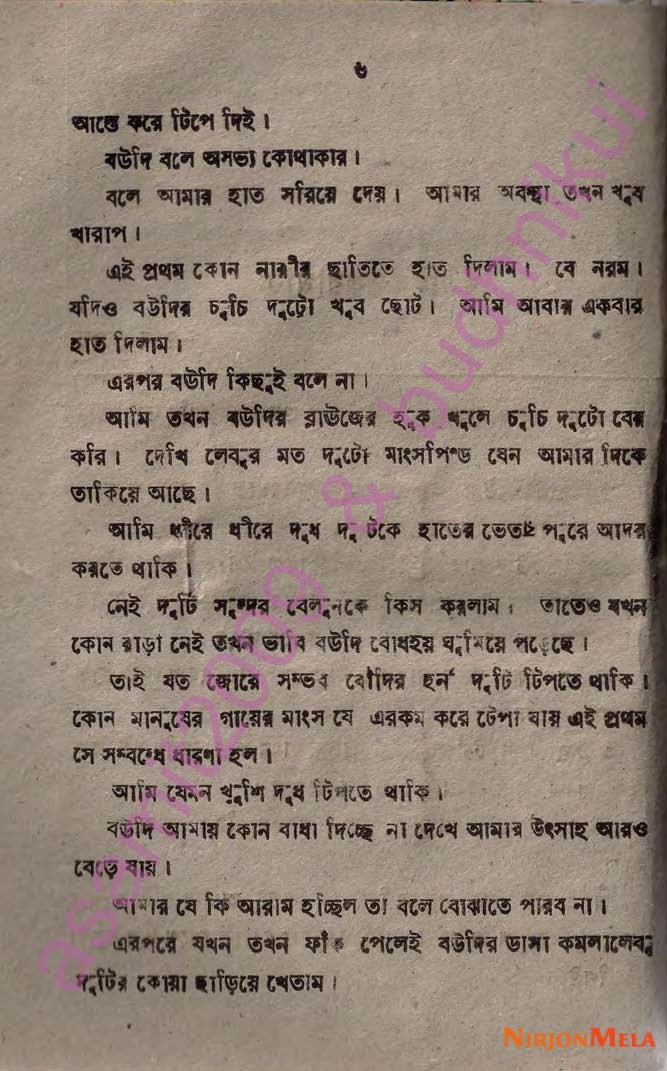 ৬
আস্তে করে টিপে দিই।
বউদি বলে অসভ্য কোথাকার।
বলে আমার হাত সরিয়ে দেয়। আমার অবস্থা তখন খুব
খারাপ।
এই প্রথম কোন নারীর ছাতিতে হাত দিলাম। বে নরম।
যদিও বউদির চুচি দুটো খুব ছোট। আমি আবার একবার
হাত দিলাম।
এরপর বউদি কিছুই বলে না।
আমি তখন বউদির ব্লাউজের হুক খুলে চুচি দুটো বের
করি। দেখি লেবুর মত দুটো মাংসপিণ্ড যেন আমার দিকে
তাকিয়ে আছে।
আমি ধীরে ধীরে দুধ দু টিকে হাতের ভেতর পুরে আদর
করতে থাকি।
নেই দুটি সুন্দর বেলুনকে কিস করলাম। তাতেও যখন
কোন রাড়া নেই তখন ভাবি বউদি বোধহয় ঘুমিয়ে পড়েছে।
তাই যত জোরে সম্ভব বৌদির হর্ন দুটি টিপতে থাকি।
কোন মানুষের গায়ের মাংস যে এরকম করে টেপা যায় এই প্রথম
সে সম্বন্ধে ধারণা হল।
আমি যেমন খুশি দুধ টিপতে থাকি।
বউদি আমায় কোন বাধা দিচ্ছে না দেখে আমার উৎসাহ আরও
বেড়ে যায়।
আমার যে কি আরাম হচ্ছিল তা বলে বোঝাতে পারব না।
এরপরে যখন তখন ফাঁক পেলেই বউদির ডাসা কমলালেবু
দুটির কোয়া ছাড়িয়ে খেতাম।
asami2009 & budhhikui
NIRJONMELA